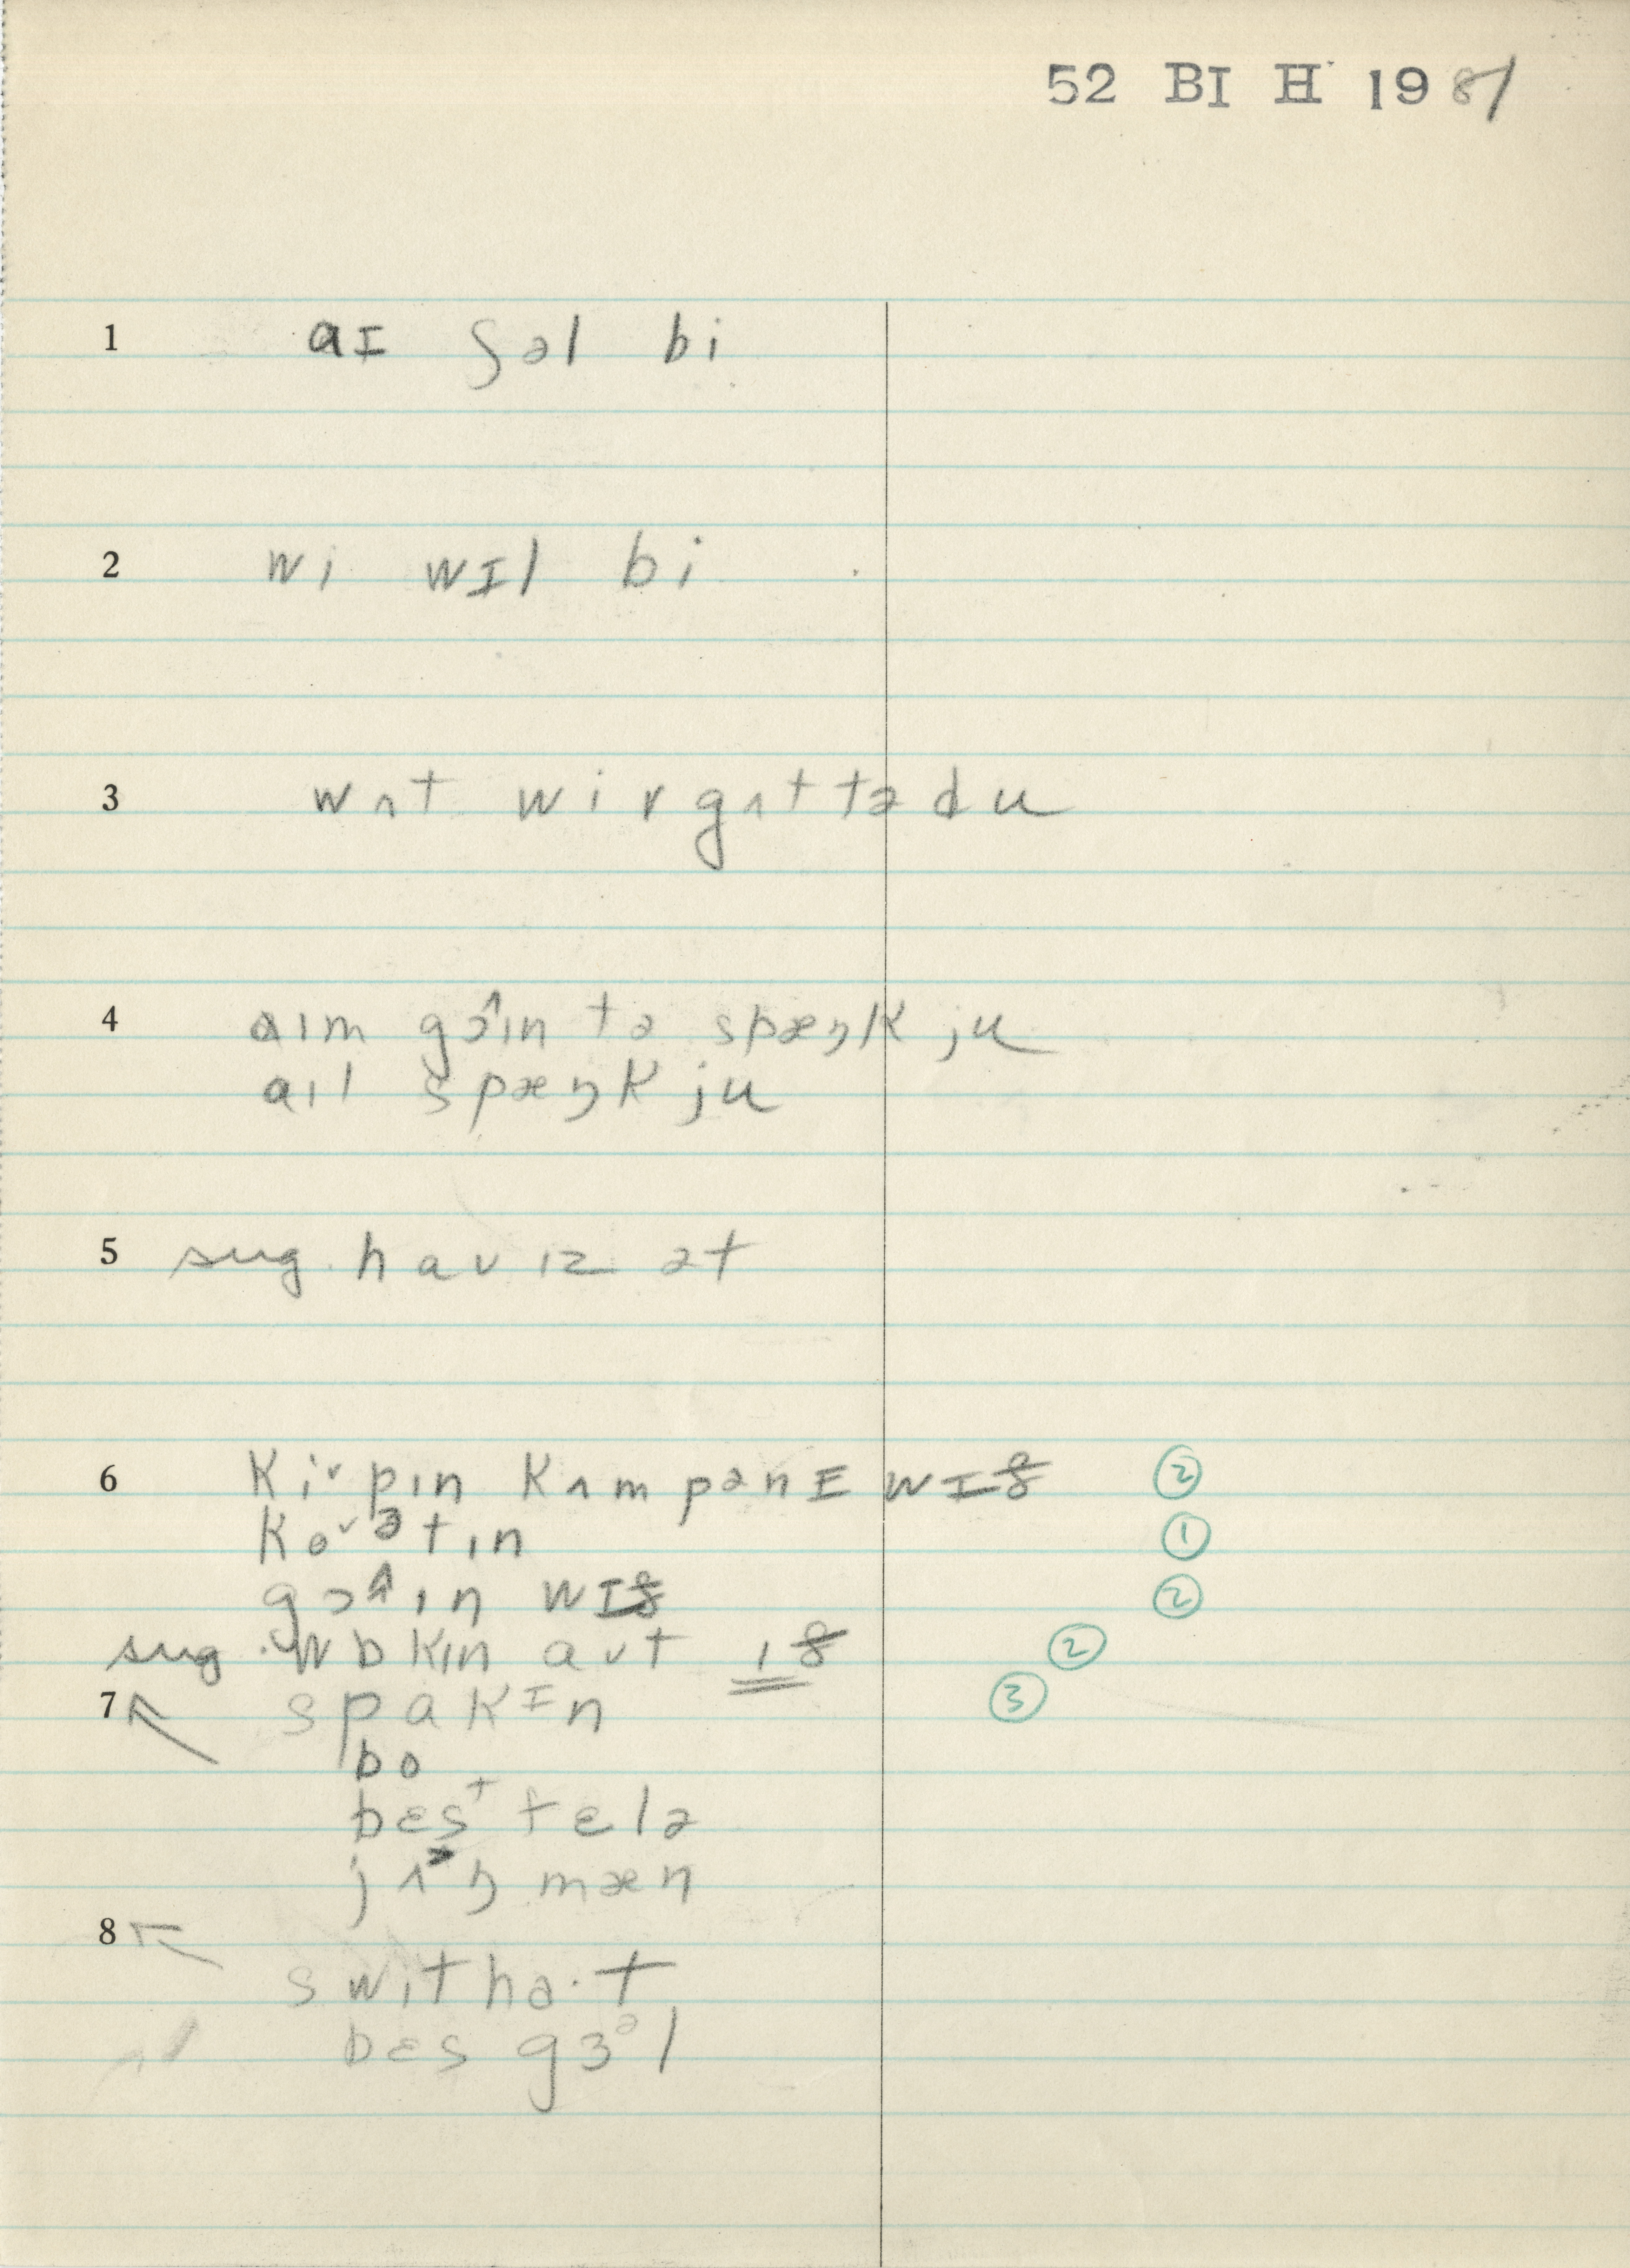 52 BI H 1981
1 aɪ ʃəl bi
2 wi wɪl bi
3 wʌt wir gʌt tə du
4 aɪm gɔ^ɪn tə spæŋk ju
aɪl spæŋk ju
5 sug. haʊ ɪz ət
6 kiᵛpɪn kʌmpənɪ wɪθ ②
koᵛətɪn ①
gɔ^ɪn wɪθ ②
sug. wɒkɪn aʊt ɪθ ②
7 spakɪn ③
bo
bɛsᵗ fɛlə
jʌ˃ŋ mæn
8 switha·t
bɛs gɜᵊl